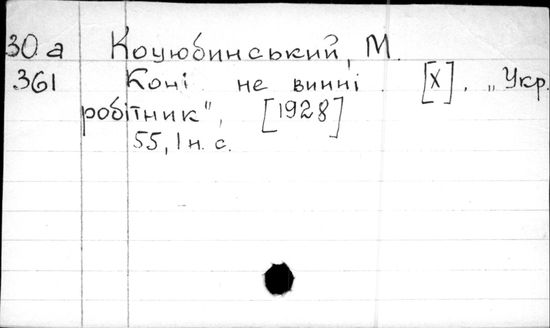 30 а Коцюбинський, М.
361 Коні не винні. [Х]. „Укр.
робітник", [1928]
55, 1 н. с.